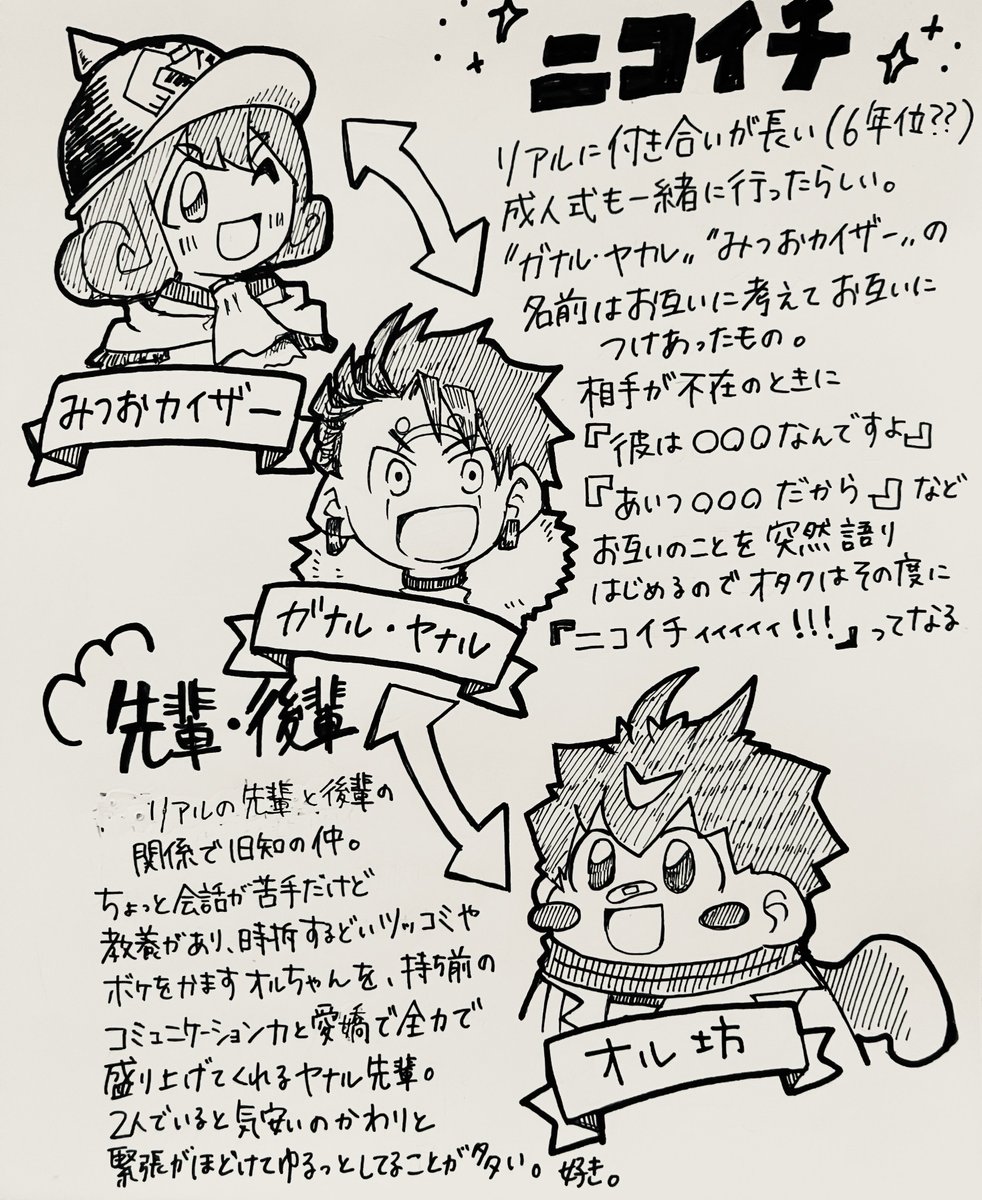 ニコイチ
リアルに付き合いが長い(6年位??)
成人式も一緒に行ったらしい。
〝ガナル・ヤナル〟〝みつおカイザー〟の
名前はお互いに考えてお互いに
つけあったもの。
相手が不在のときに
『彼は○○○なんですよ』
『あいつ○○○だから』など
お互いのことを突然語り
はじめるのでオタクはその度に
『ニコイチィィィィィ!!!』ってなる
みつおカイザー
ガナル・ヤナル
先輩・後輩
リアルの先輩と後輩の
関係で旧知の仲。
ちょっと会話が苦手だけど
教養があり、時折するどいツッコミや
ボケをかますオルちゃんを、持ち前の
コミュニケーション力と愛嬌で全力で
盛り上げてくれるヤナル先輩。
2人でいると気安いのかわりと
緊張がほどけてゆるっとしてることが多い。好き。
オル坊